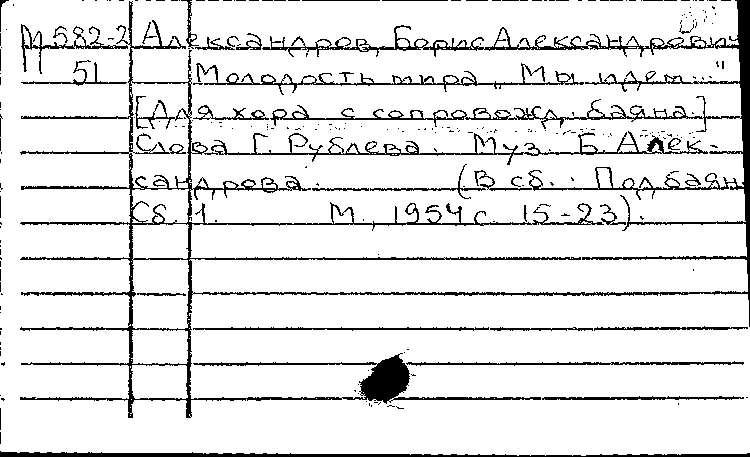 М 582-2 Александров, Борис Александрович
51 Молодость мира „Мы идем..."
[Для хора с сопровожд. баяна.]
Слова Г. Рублева. Муз. Б. Алек-
сандрова. (В сб.: Под баян
Сб. 1. М., 1954 с. 15-23).